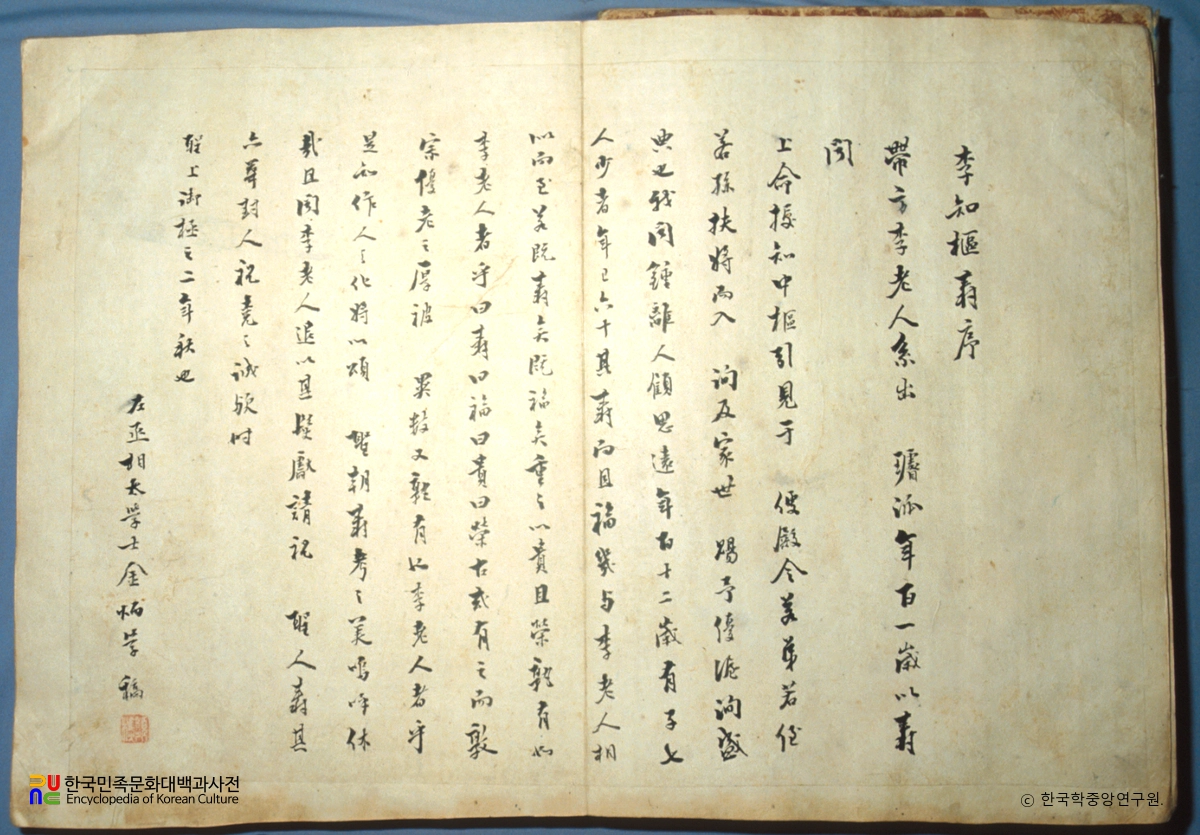 李知樞壽序
帶方李老人系出 璿派年百一歲以壽
聞
上命授知中樞引見于 便殿令若弟若侄
若孫扶將而入 詢及家世 賜予優渥洵盛
典也我聞鍾離人顧思遠年百十二歲有子七
人少者年已六十其壽而且福幾与李老人相
以而至若旣壽矣旣福矣重之以貴且榮孰有如
李老人者乎曰壽曰福曰貴曰榮古或有之而敦
宗優老之厚被 異數又孰有比李老人者乎
是知作人之化將以頌 聖朝壽考之美嗚呼休
哉且聞李老人退以其 獻請祝 聖人壽其
亦華封人祝堯之誠歟時
聖上御極之二年秋也
左丞相太學士金炳學稿
한국민족문화대백과사전
Encyclopedia of Korean Culture
© 한국학중앙연구원.